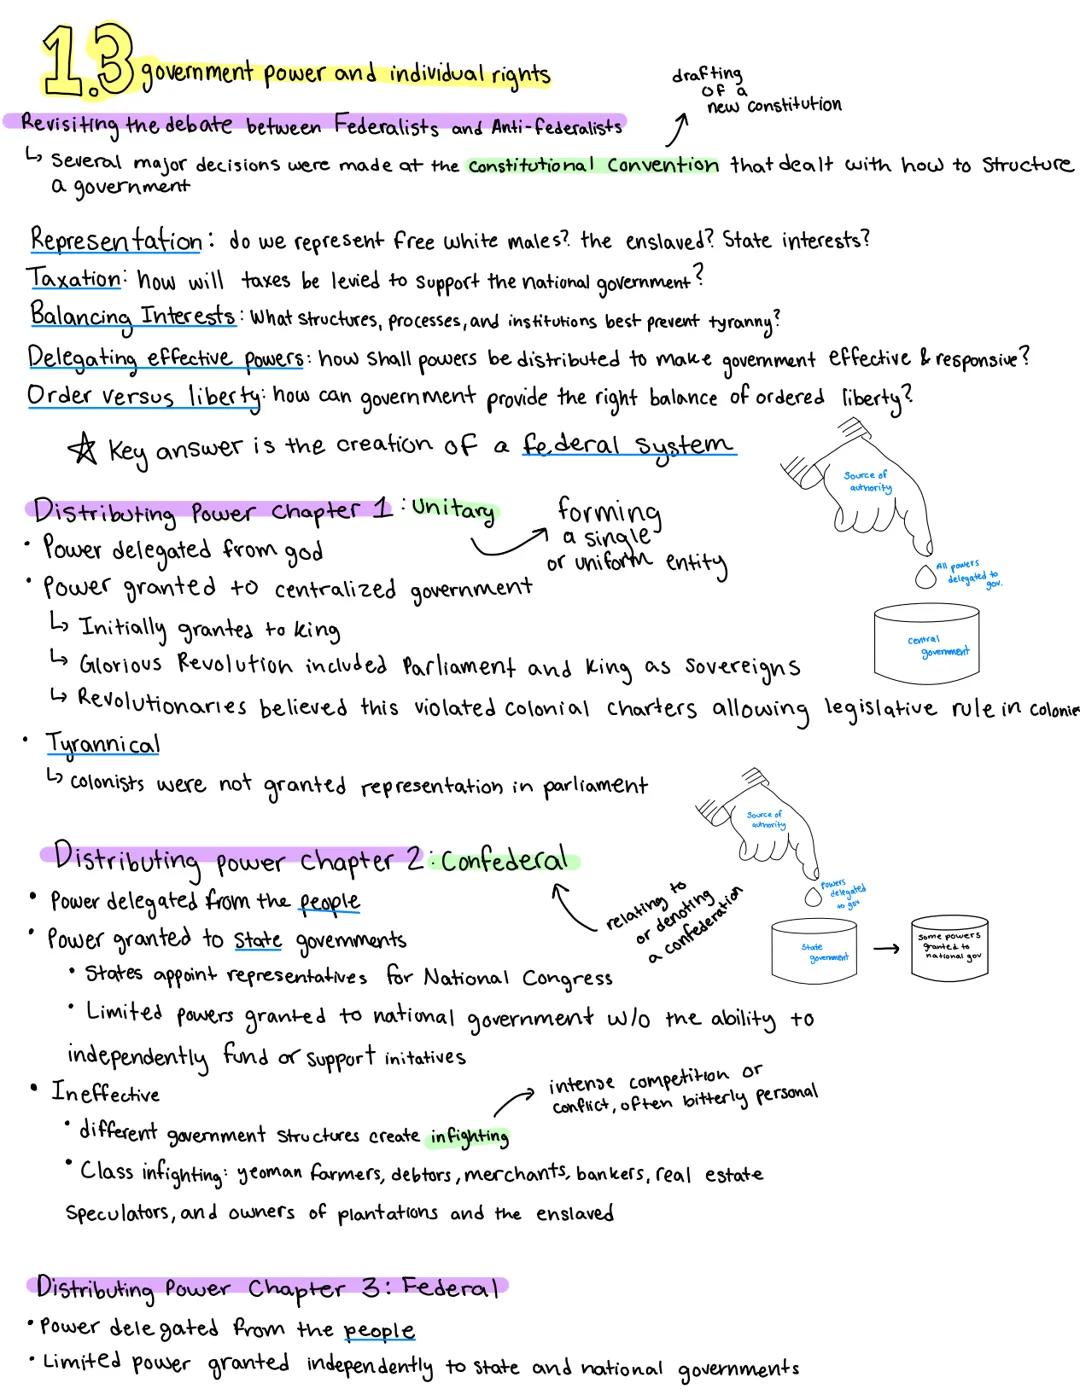 1.3 government power and individual rights
drafting
of a
new constitution
Revisiting the debate between Federalists and Anti-federalists
↳ Several major decisions were made at the constitutional convention that dealt with how to structure
a government
Representation: do we represent free white males? the enslaved? State interests?
Taxation: how will taxes be levied to support the national government?
Balancing Interests: What structures, processes, and institutions best prevent tyranny?
Delegating effective powers: how shall powers be distributed to make government effective & responsive?
Order versus liberty: how can government provide the right balance of ordered liberty?
☆ Key answer is the creation of a federal system
Source of
authority
All powers
delegated to
gov.
Central
government
Distributing Power Chapter 1: Unitary
forming
a single
or uniform entity
• Power delegated from god
• Power granted to centralized government
↳ Initially granted to king
↳ Glorious Revolution included Parliament and King as sovereigns
↳ Revolutionaries believed this violated colonial charters allowing legislative rule in colonie
• Tyrannical
↳ colonists were not granted representation in parliament
Source of
authority
Powers
delegated
to gov
State
government
Some powers
granted to
national gov
Distributing power Chapter 2: Confederal
relating to
or denoting
a confederation
• Power delegated from the people
• Power granted to State governments
• States appoint representatives for National Congress
• Limited powers granted to national government w/o the ability to
independently fund or support initatives
• Ineffective
intense competition or
conflict, often bitterly personal
• different government structures create infighting
• Class infighting: yeoman farmers, debtors, merchants, bankers, real estate
Speculators, and owners of plantations and the enslaved
Distributing Power Chapter 3: Federal
• Power delegated from the people
• Limited power granted independently to state and national governments